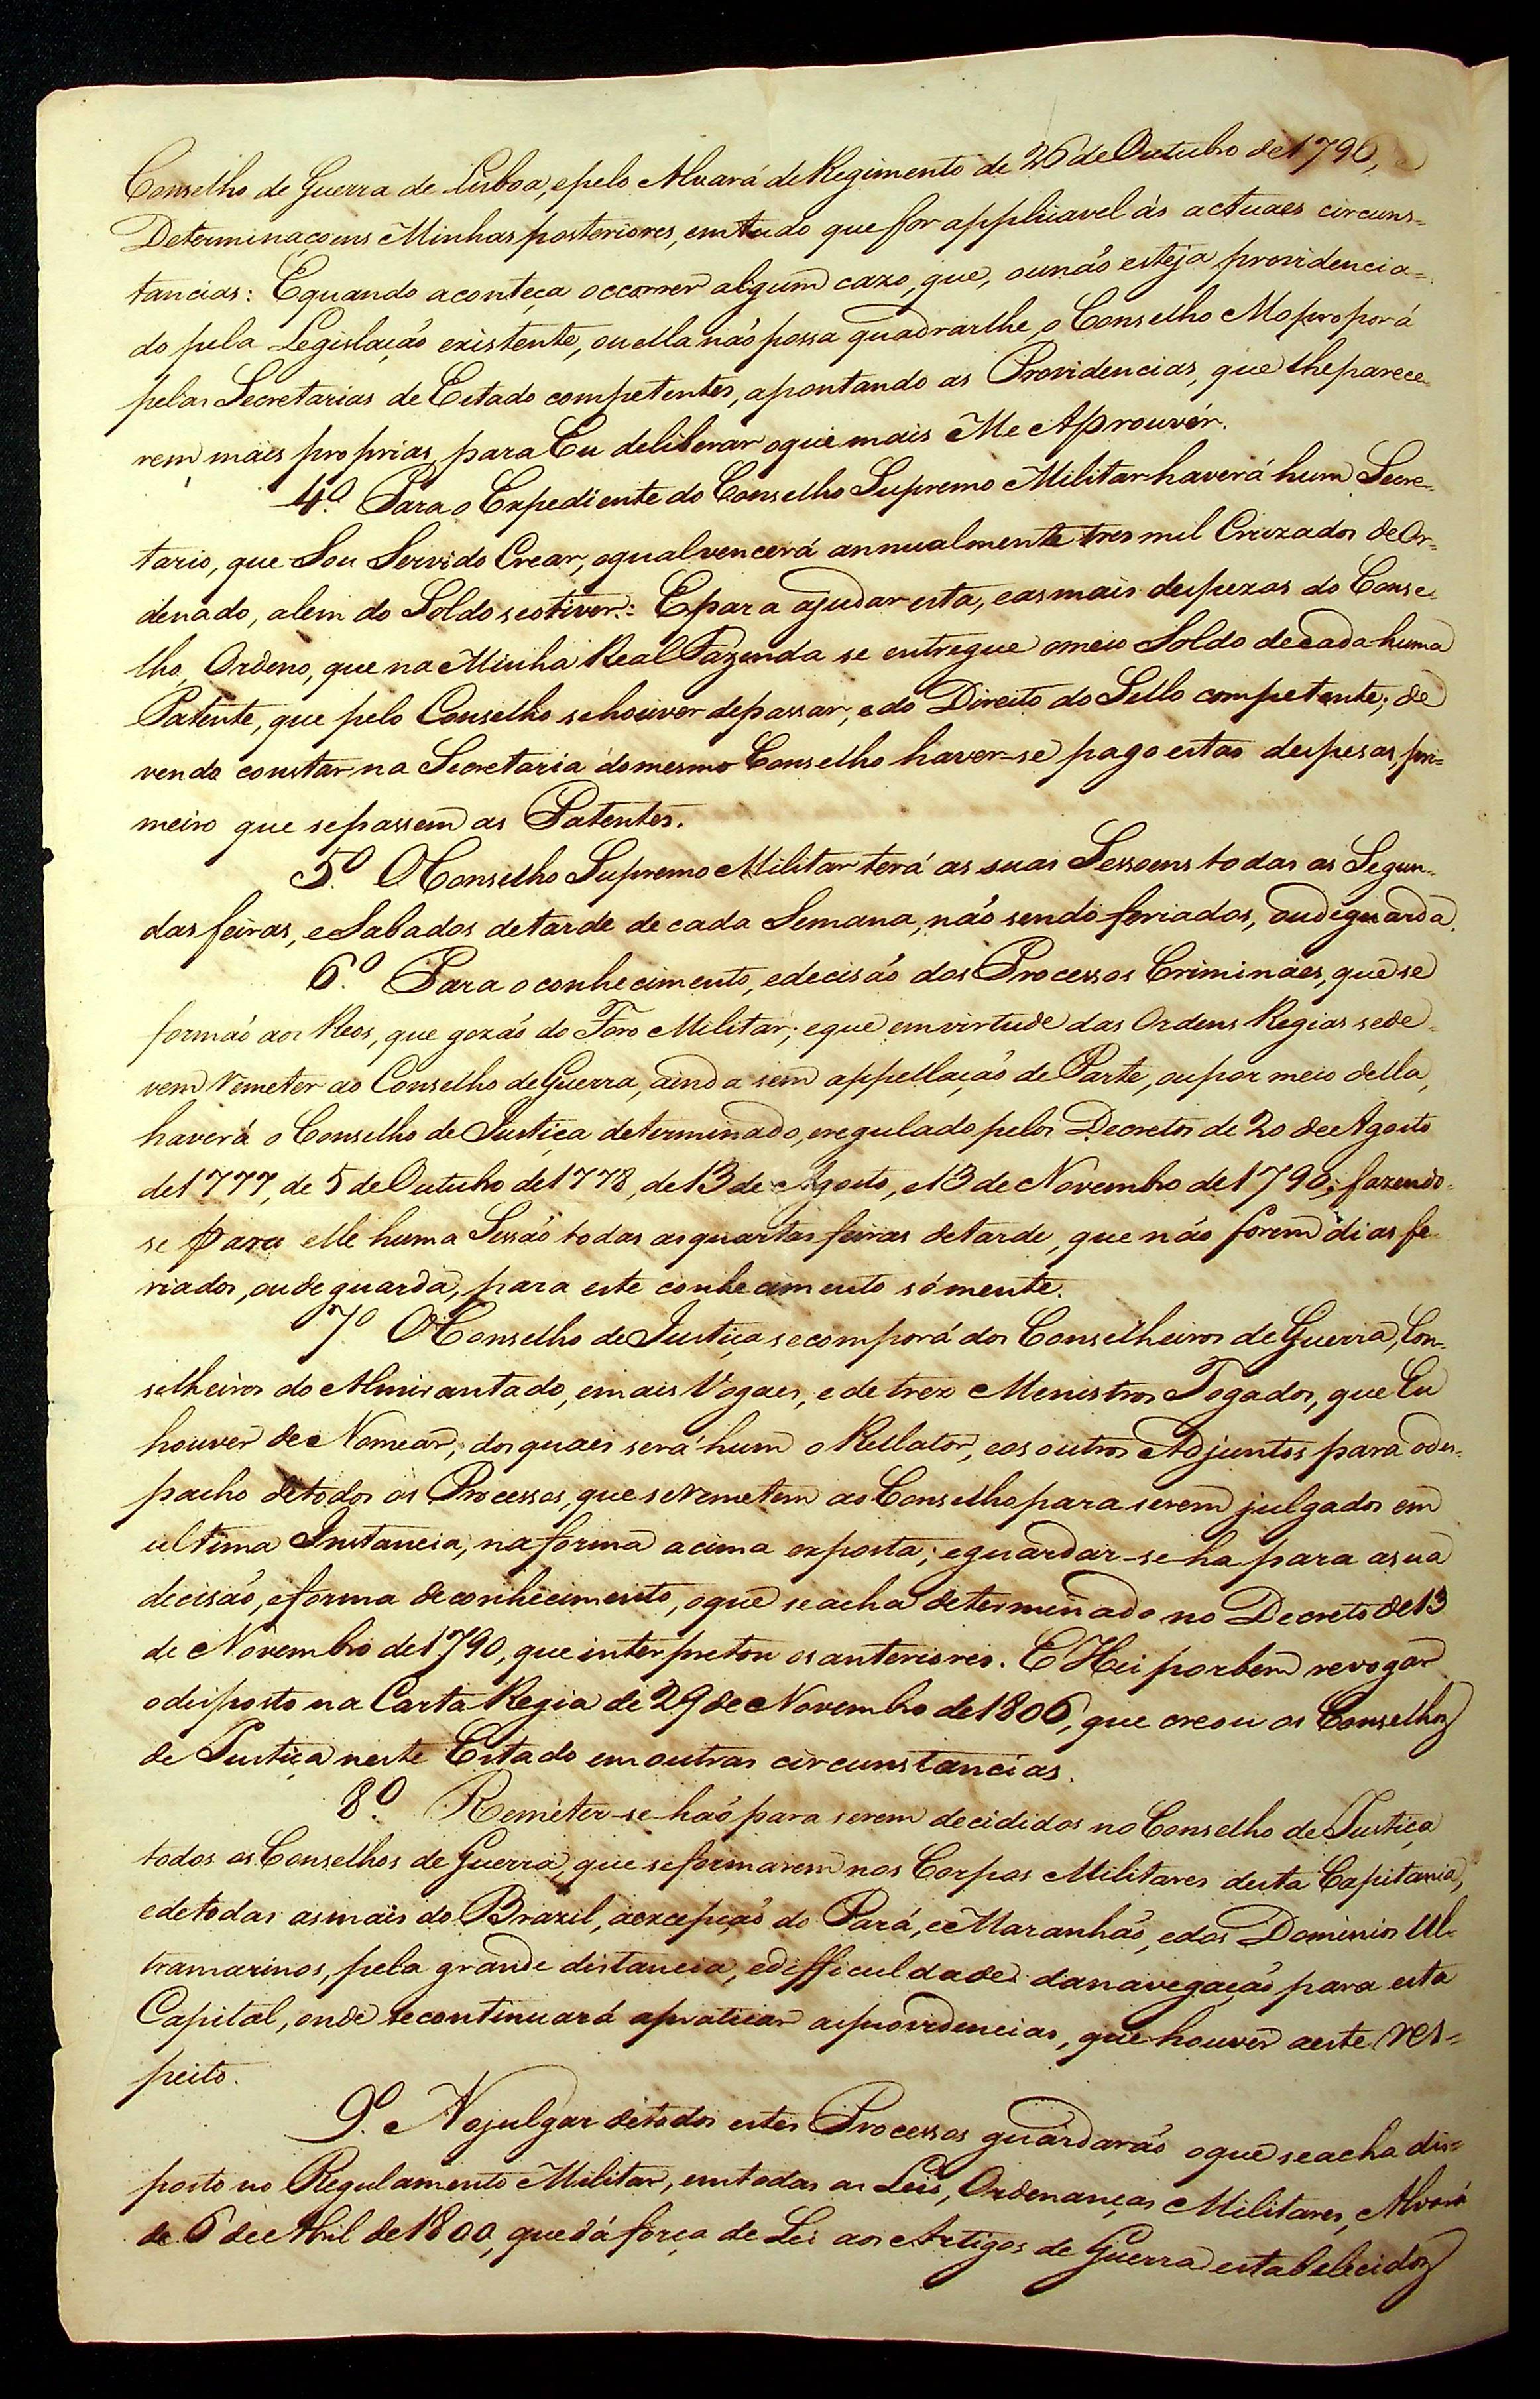 Conselho de Guerra de Lisboa, e pelo Alvará de Regimento de 26 de Outubro de 1796, e
Determinaçoens Minhas posteriores, em tudo que for applicavel ás actuaes circuns-
tancias: E quando aconteça occorrer algum cazo, que, ou não esteja providencia-
do pela Legislação existente, ou ella não possa quadrar lhe, o Conselho Mo proporá
pelas Secretarias de Estado competentes, apontando as Providencias, que lhe parece-
rem mais proprias, para Eu deliberar o que mais Me Aprouvér.
4.º Para o Expediente do Conselho Supremo Militar haverá hum Secre-
tario, que Sou Servido Crear, o qual vencerá annualmente tres mil Cruzados de Or-
denado, alem do Soldo se o tiver: E para ajudar esta, e as mais despezas do Conse-
lho, Ordeno, que na Minha Real Fazenda se entregue o meio Soldo de cada huma
Patente, que pelo Conselho se houver de passar, e do Direito do Sello competente; de
vendo constar na Secretaria do mesmo Conselho haver-se pago estas despesas, pri-
meiro que se passem as Patentes.
5.º O Conselho Supremo Militar terá as suas Sessoens todas as Segun-
das feiras, e Sabados de tarde de cada Semana, não sendo feriados, ou de guarda.
6.º Para o conhecimento, e decisão dos Processos Criminaes, que se
formão aos Reos, que gozão do Foro Militar; e que em virtude das Ordens Regias se de-
vem remeter ao Conselho de Guerra, ainda sem appellação de Parte, ou por meio della,
haverá o Conselho de Justiça determinado, e regulado pelos Decretos de 20 de Agosto
de 1777, de 5 de Outubro de 1778, de 13 de Agosto, e 13 de Novembro de 1790; fazendo-
se para elle huma Sessão todas as quartas feiras de tarde, que não forem dias fe-
riados, ou de guarda, para este conhecimento sómente.
7.º O Conselho de Justiça se comporá dos Conselheiros de Guerra, Con-
selheiros do Almirantado, e mais Vogaes, e de trez Menistros Togados, que Eu
houver de Nomear, dos quaes será hum o Rellator, e os outros Adjuntos para o des-
pacho de todos os Processos, que se remetem ao Conselho para serem julgados em
ultima Instancia, na forma acima exposta; e guardar-se-ha para a sua
decisão, e forma de conhecimento, o que se acha determinado no Decreto de 13
de Novembro de 1790, que interpretou os anteriores. E Hei por bem revogar
o disposto na Carta Regia de 29 de Novembro de 1806, que creou os Conselhos
de Justiça neste Estado em outras circunstancias.
8.º Remeter-se-hão para serem decididos no Conselho de Justiça
todos os Conselhos de Guerra, que se formarem nos Corpos Militares desta Capitania,
e de todas as mais do Brazil, á excepção do Pará, e Maranhão, e dos Dominios Ul-
tramarinos, pela grande distancia, e difficuldade da navegação para esta
Capital, onde se continuará a praticar as providencias, que houver a este res-
peito.
9.º No julgar de todos estes Processos guardarão o que se acha dis-
posto no Regulamento Militar, em todas as Leis, Ordenanças Militares, Alvará
de 6 de Abril de 1800, que dá força de Lei aos Artigos de Guerra estabelecidos